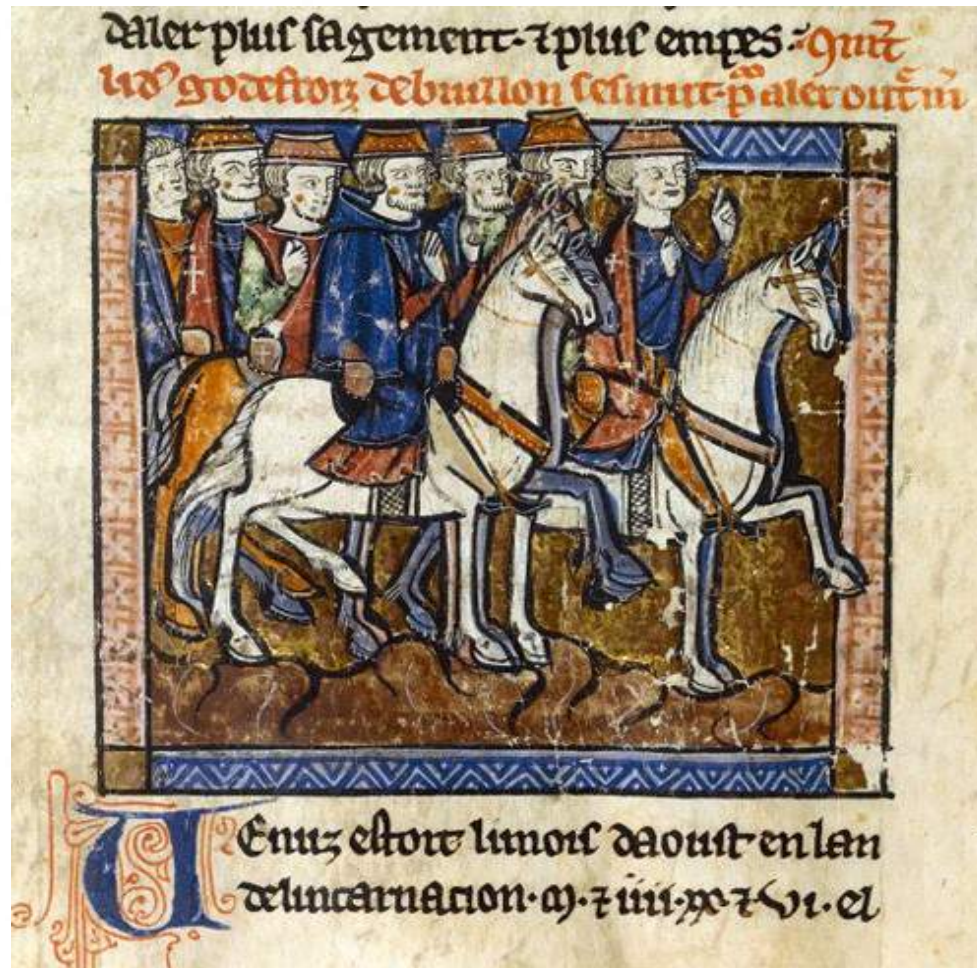 daler plus sagement · ⁊ plus empes · ꝯmt̃
li dˢ godefroiz de buillon sesmut · pͬ aler outͬ m̃
UEnuz estoit li mois daoust en lan
de lincarnacion · m · ⁊ iiii · xx · ⁊ vi · el